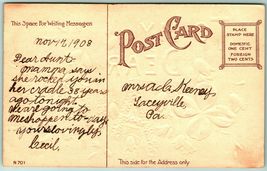 This Space for Writing Messages
POST CARD
PLACE
STAMP HERE
DOMESTIC
ONE CENT
FOREIGN
TWO CENTS
Nov 17, 1908
Dear Aunt
mamma says
she rocked you in
her cradle 38 years
ago tonight.
We are going to
to-day
yours lovingly
Cecil.
Mrs Ada Keeney
Laceyville
Pa.
N 701
This side for the Address only